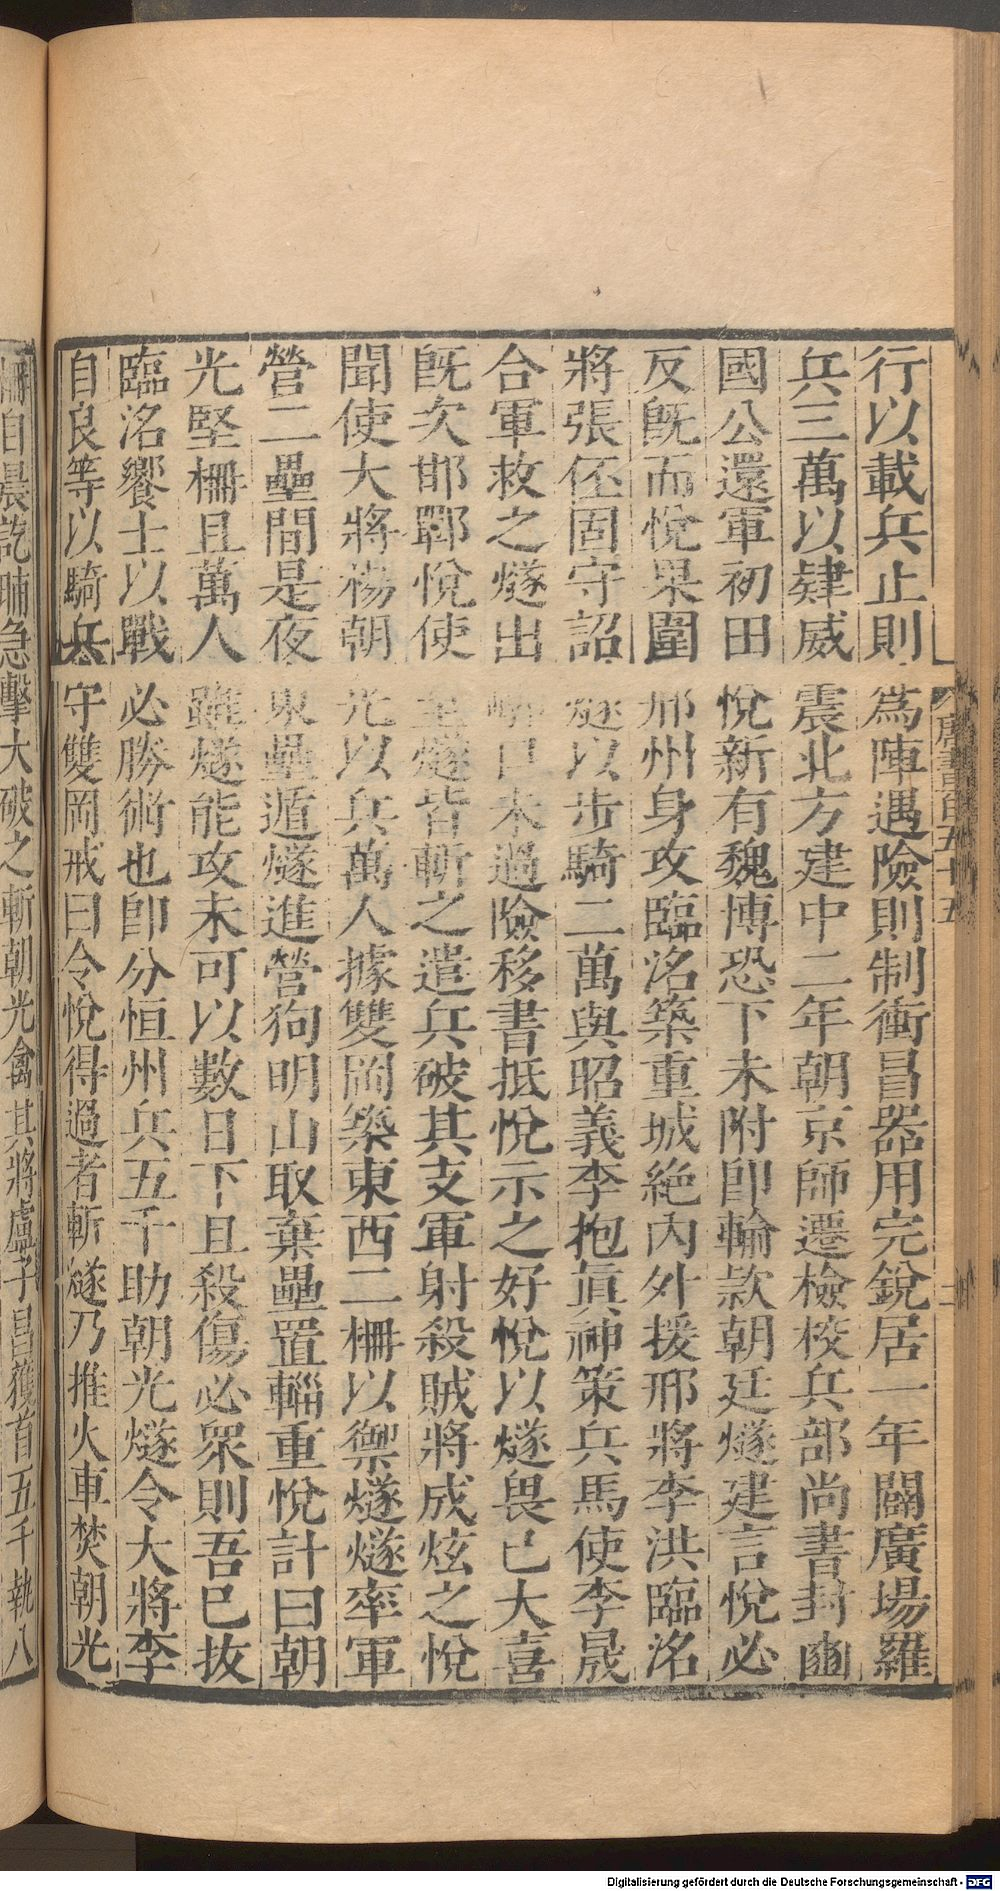 行以載兵止則爲陣遇險則制衝冒器用完銳居一年闢廣場羅
兵三萬以肄威震北方建中二年朝京師遷檢校兵部尚書封豳
國公還軍初田悅新有魏博恐下未附即輸款朝廷燧建言悅必
反旣而悅果圍邢州身攻臨洺築重城絕內外援邢將李洪臨洺
將張伾固守詔燧以步騎二萬與昭義李抱眞神策兵馬使李晟
合軍救之燧出 口未過險移書抵悅示之好悅以燧畏己大喜
旣次邯鄲悅使至燧皆斬之遣兵破其支軍射殺賊將成炫之悅
聞使大將楊朝光以兵萬人據雙岡築東西二柵以禦燧燧率軍
營二壘間是夜東壘遁燧進營狗明山取棄壘置輜重悅計曰朝
光堅柵且萬人雖燧能攻未可以數日下且殺傷必衆則吾已拔
臨洺饗士以戰必勝術也即分恒州兵五千助朝光燧令大將李
自良等以騎兵守雙岡戒曰令悅得過者斬燧乃推火車焚朝光
唐書百五十五
柵自晨訖晡急擊大破之斬朝光禽其將盧子昌獲首五千執八
Digitalisierung gefördert durch die Deutsche Forschungsgemeinschaft - DFG